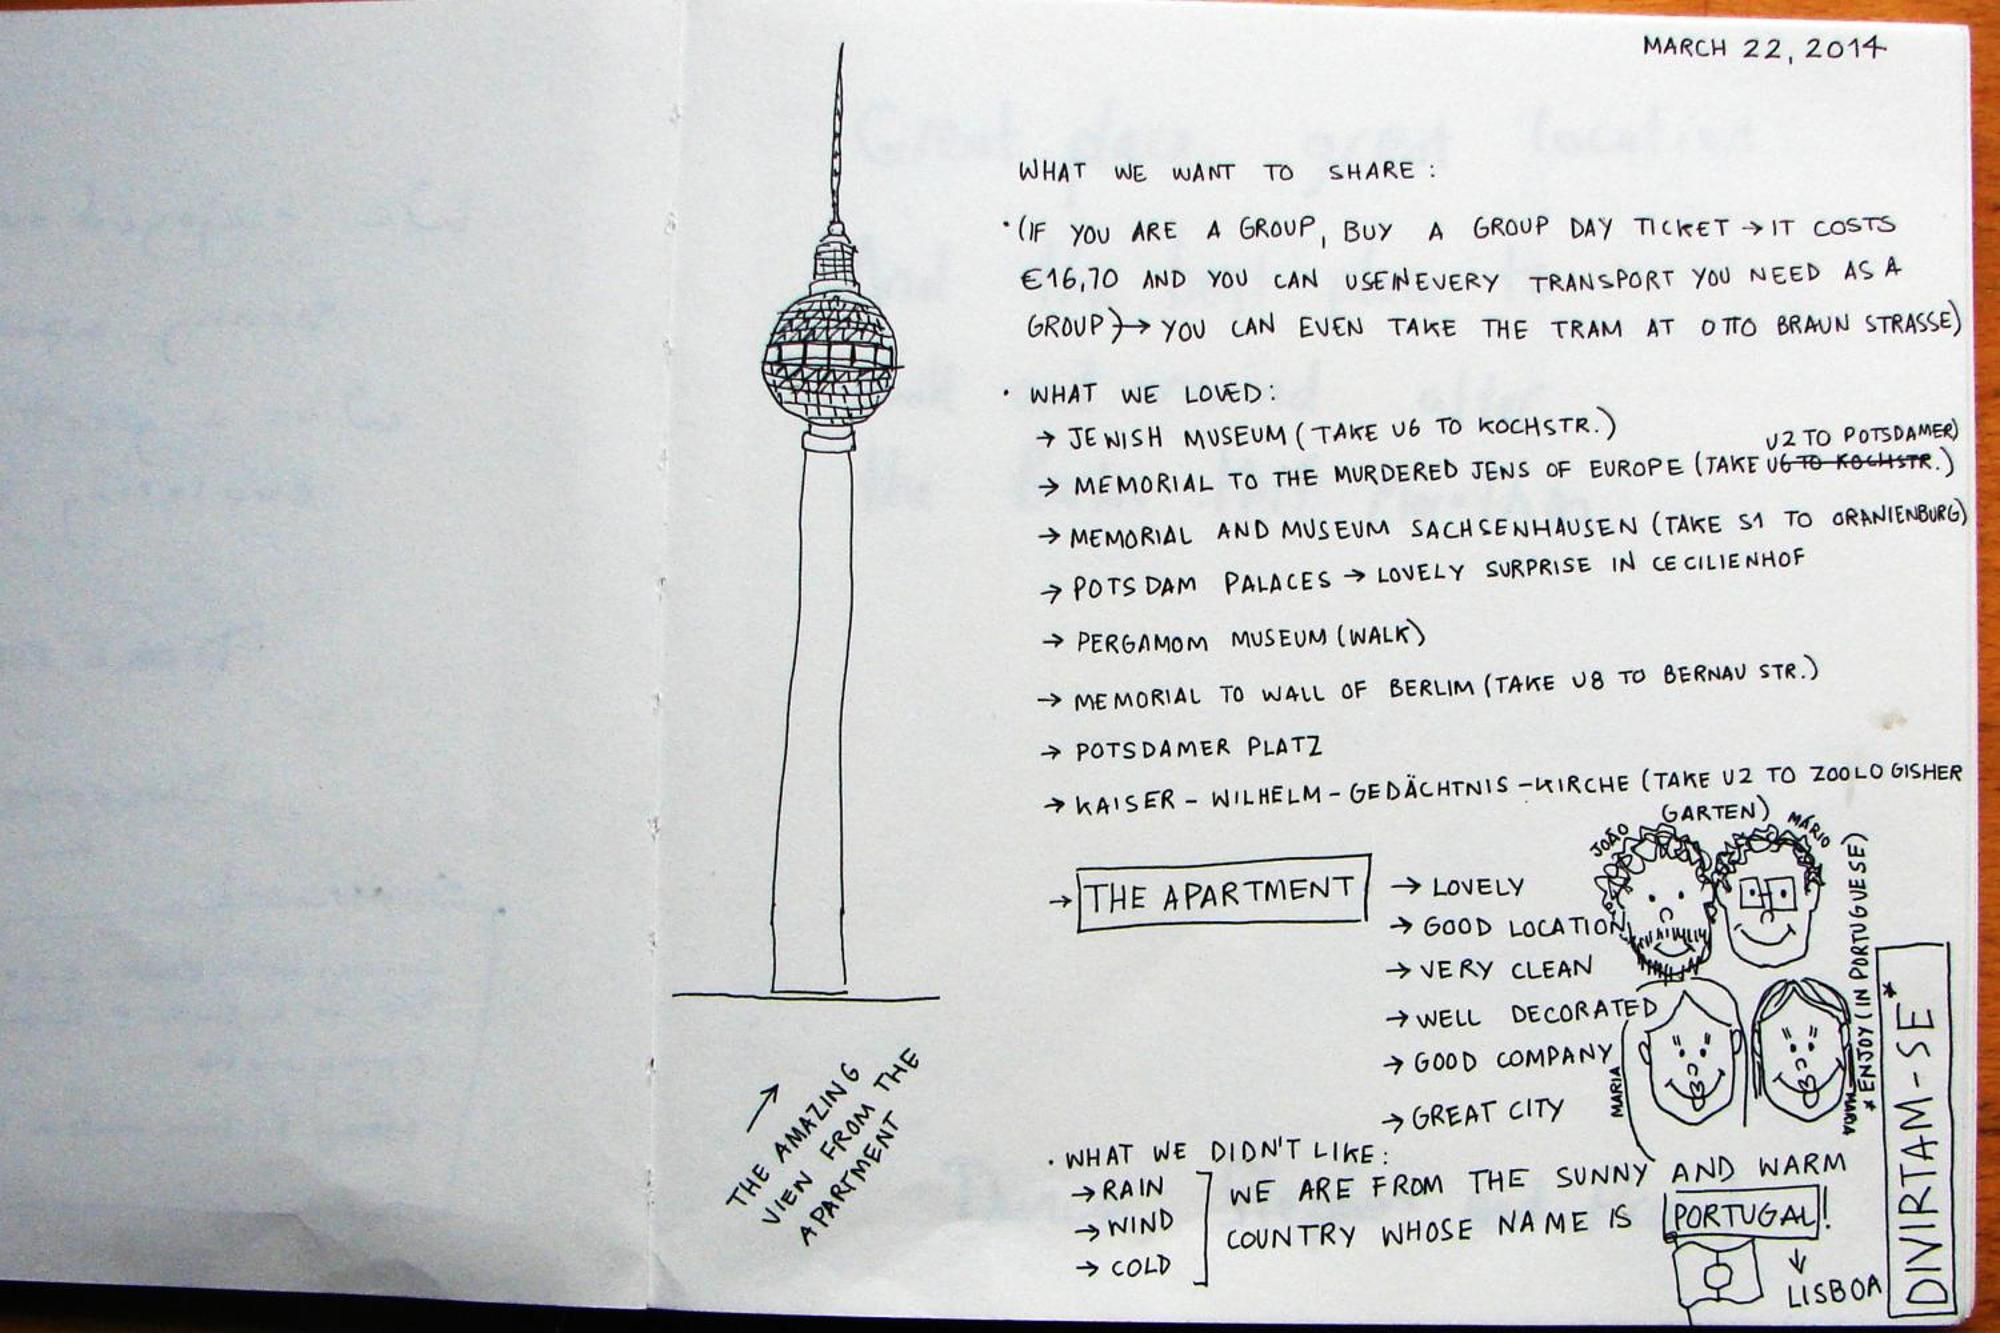 MARCH 22, 2014
WHAT WE WANT TO SHARE:
· (IF YOU ARE A GROUP, BUY A GROUP DAY TICKET → IT COSTS
€16,70 AND YOU CAN USE IN EVERY TRANSPORT YOU NEED AS A
GROUP) → YOU CAN EVEN TAKE THE TRAM AT OTTO BRAUN STRASSE)
· WHAT WE LOVED:
→ JEWISH MUSEUM (TAKE U6 TO KOCHSTR.)
U2 TO POTSDAMER)
→ MEMORIAL TO THE MURDERED JEWS OF EUROPE (TAKE U6 TO KOCHSTR.)
→ MEMORIAL AND MUSEUM SACHSENHAUSEN (TAKE S1 TO ORANIENBURG)
→ POTSDAM PALACES → LOVELY SURPRISE IN CECILIENHOF
→ PERGAMOM MUSEUM (WALK)
→ MEMORIAL TO WALL OF BERLIM (TAKE U8 TO BERNAU STR.)
→ POTSDAMER PLATZ
→ KAISER-WILHELM-GEDÄCHTNIS-KIRCHE (TAKE U2 TO ZOOLOGISHER
GARTEN)
JOÃO
MÁRIO
→ THE APARTMENT
→ LOVELY
→ GOOD LOCATION
→ VERY CLEAN
→ WELL DECORATED
→ GOOD COMPANY
→ GREAT CITY
MARIA
* ENJOY (IN PORTUGUESE)
DIVIRTAM-SE*
· WHAT WE DIDN'T LIKE:
→ RAIN
→ WIND
→ COLD
WE ARE FROM THE SUNNY AND WARM
COUNTRY WHOSE NAME IS PORTUGAL!
↓
LISBOA
→
THE AMAZING
VIEW FROM THE
APARTMENT